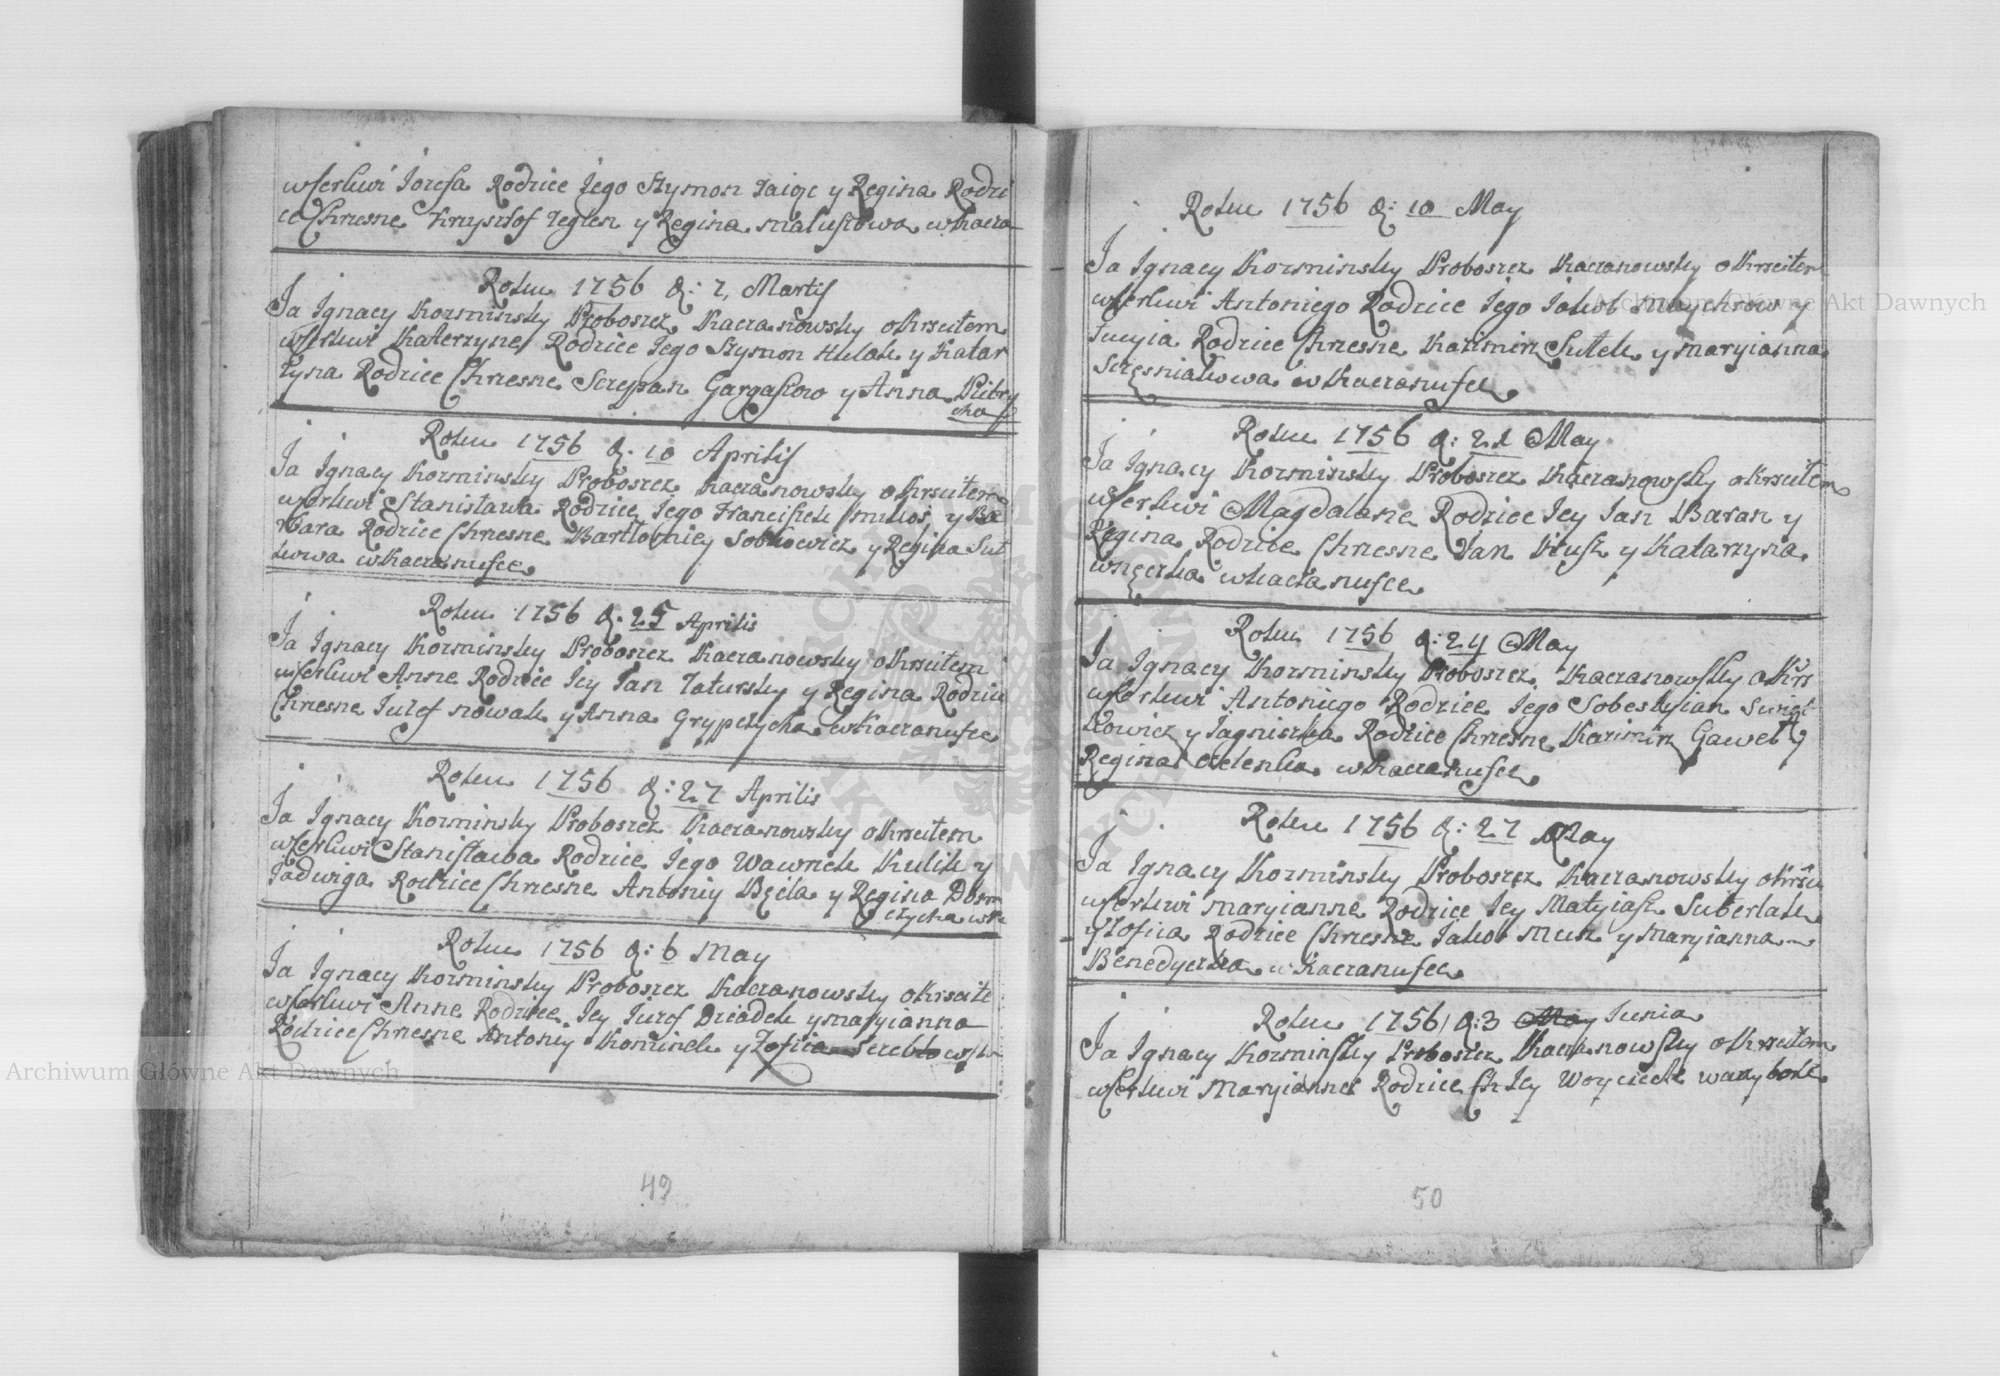 wserkwi Jozefa Rodzice Jego Szymon Zaiąc y Regina Rodzi
ce Chrzesne Krzysztof Zeglen y Regina małuszowa wKaczа
Roku 1756 d: 7 Martij
Ja Ignacy Kozminsky Proboszcz Kaczanowsky okrzcilem
wserkwi Katerzyne Rodzice Jego Szymon Kulak y Katar
zyna Rodzice Chrzesne Szczepan Gargaszow y Anna Pibry
cka
Roku 1756 d. 10 Aprilis
Ja Ignacy Kozminsky Proboszcz Kaczanowsky okrzcilem
wserkwi Stanisława Rodzice Jego Franciszek miłoś y Ba
rbara Rodzice Chrzesne Bartłomiey Sobkowicz y Regina Sut
kowa wKaczanusce
Roku 1756 d. 25 Aprilis
Ja Ignacy Kozminsky Proboszcz Kaczanowsky okrzcilem
wserkwi Anne Rodzice Jey Jan Zatursky y Regina Rodzice
Chrzesne Juzef nowak y Anna Grypczycha wKaczanusce
Roku 1756 d: 27 Aprilis
Ja Ignacy Kozminsky Proboszcz Kaczanowsky okrzcilem
wserkwi Stanisława Rodzice Jego Wawrzek Kulik y
Jadwiga Rodzice Chrzesne Antoniy Bęcla y Regina Dom
czycha wKa
Roku 1756 d: 6 May
Ja Ignacy Kozminsky Proboszcz Kaczanowsky okrzcile
wserkwi Anne Rodzice Jey Juzef Dziadek y maryianna
Rodzice Chrzesne Antoniy Kominek y Zofiia
49
Roku 1756 d: 10 May
Ja Ignacy Kozminsky Proboszcz Kaczanowsky okrzcilem
wserkwi Antoniego Rodzice Jego Jakob Maychrow y
Łucyia Rodzice Chrzesne Kazimirz Sutek y maryianna
Szczęsniakowa wKaczanusce
Roku 1756 d: 21 May
Ja Ignacy Kozminsky Proboszcz Kaczanowsky okrzcilem
wserkwi Magdalane Rodzice Jey Jan Baran y
Regina Rodzice Chrzesne Jan Kusz y Katarzyna
wnęczka wkaczanusce
Roku 1756 d: 24 May
Ja Ignacy Kozminsky Proboszcz Kaczanowsky okrz
wserkwi Antoniego Rodzice Jego Sobestyian Swięt
kowicz y Jagniszka Rodzice Chrzesne Kazimirz Gaweł y
Regina wKaczanusce
Roku 1756 d: 27 May
Ja Ignacy Kozminsky Proboszcz Kaczanowsky okrzci
wserkwi maryianne Rodzice Jey Matyiasz Suberlak
y Zofiia Rodzice Chrzesne Jakob Musz y maryianna
Benedyczka wKaczanusce
Roku 1756 d: 3 May Junia
Ja Ignacy Kozminsky Proboszcz Kaczanowsky okrzcilem
wserkwi Maryianne Rodzice Ch Jey Woyciech
50
Archiwum Główne Akt Dawnych
Archiwum Główne Akt Dawnych